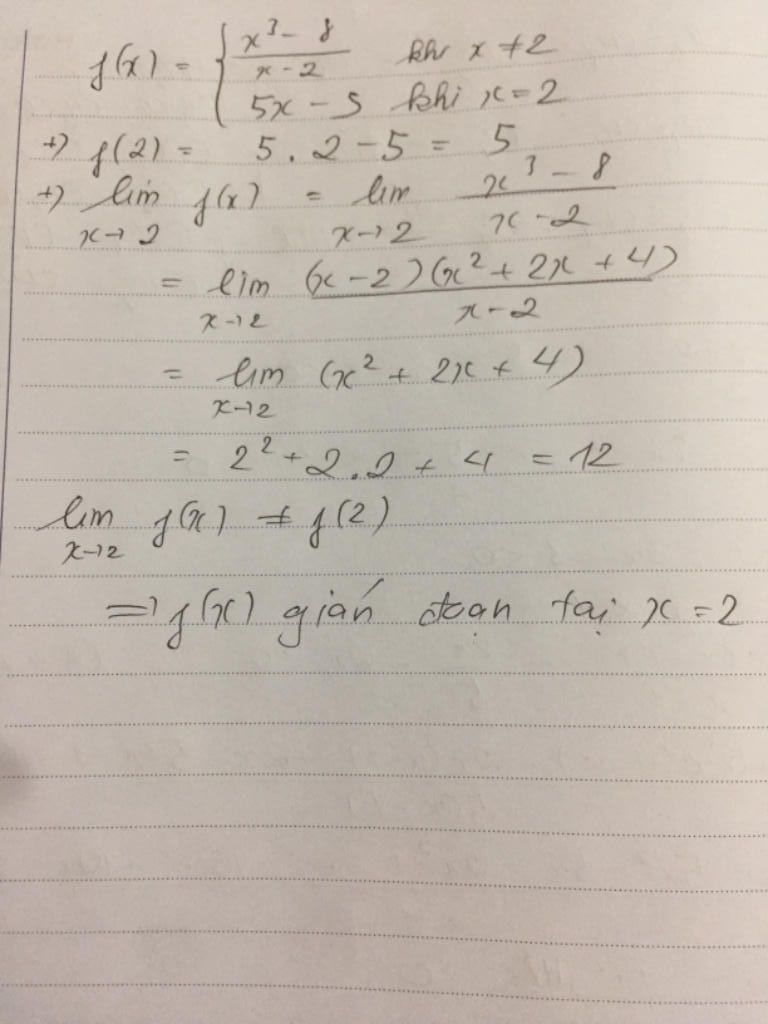 f(x) = { (x³ - 8)/(x - 2) khi x ≠ 2
5x - 5 khi x = 2
+) f(2) = 5 . 2 - 5 = 5
+) lim x→2 f(x) = lim x→2 (x³ - 8)/(x - 2)
= lim x→2 (x - 2)(x² + 2x + 4)/(x - 2)
= lim x→2 (x² + 2x + 4)
= 2² + 2.2 + 4 = 12
lim x→2 f(x) ≠ f(2)
=> f(x) gián đoạn tại x = 2